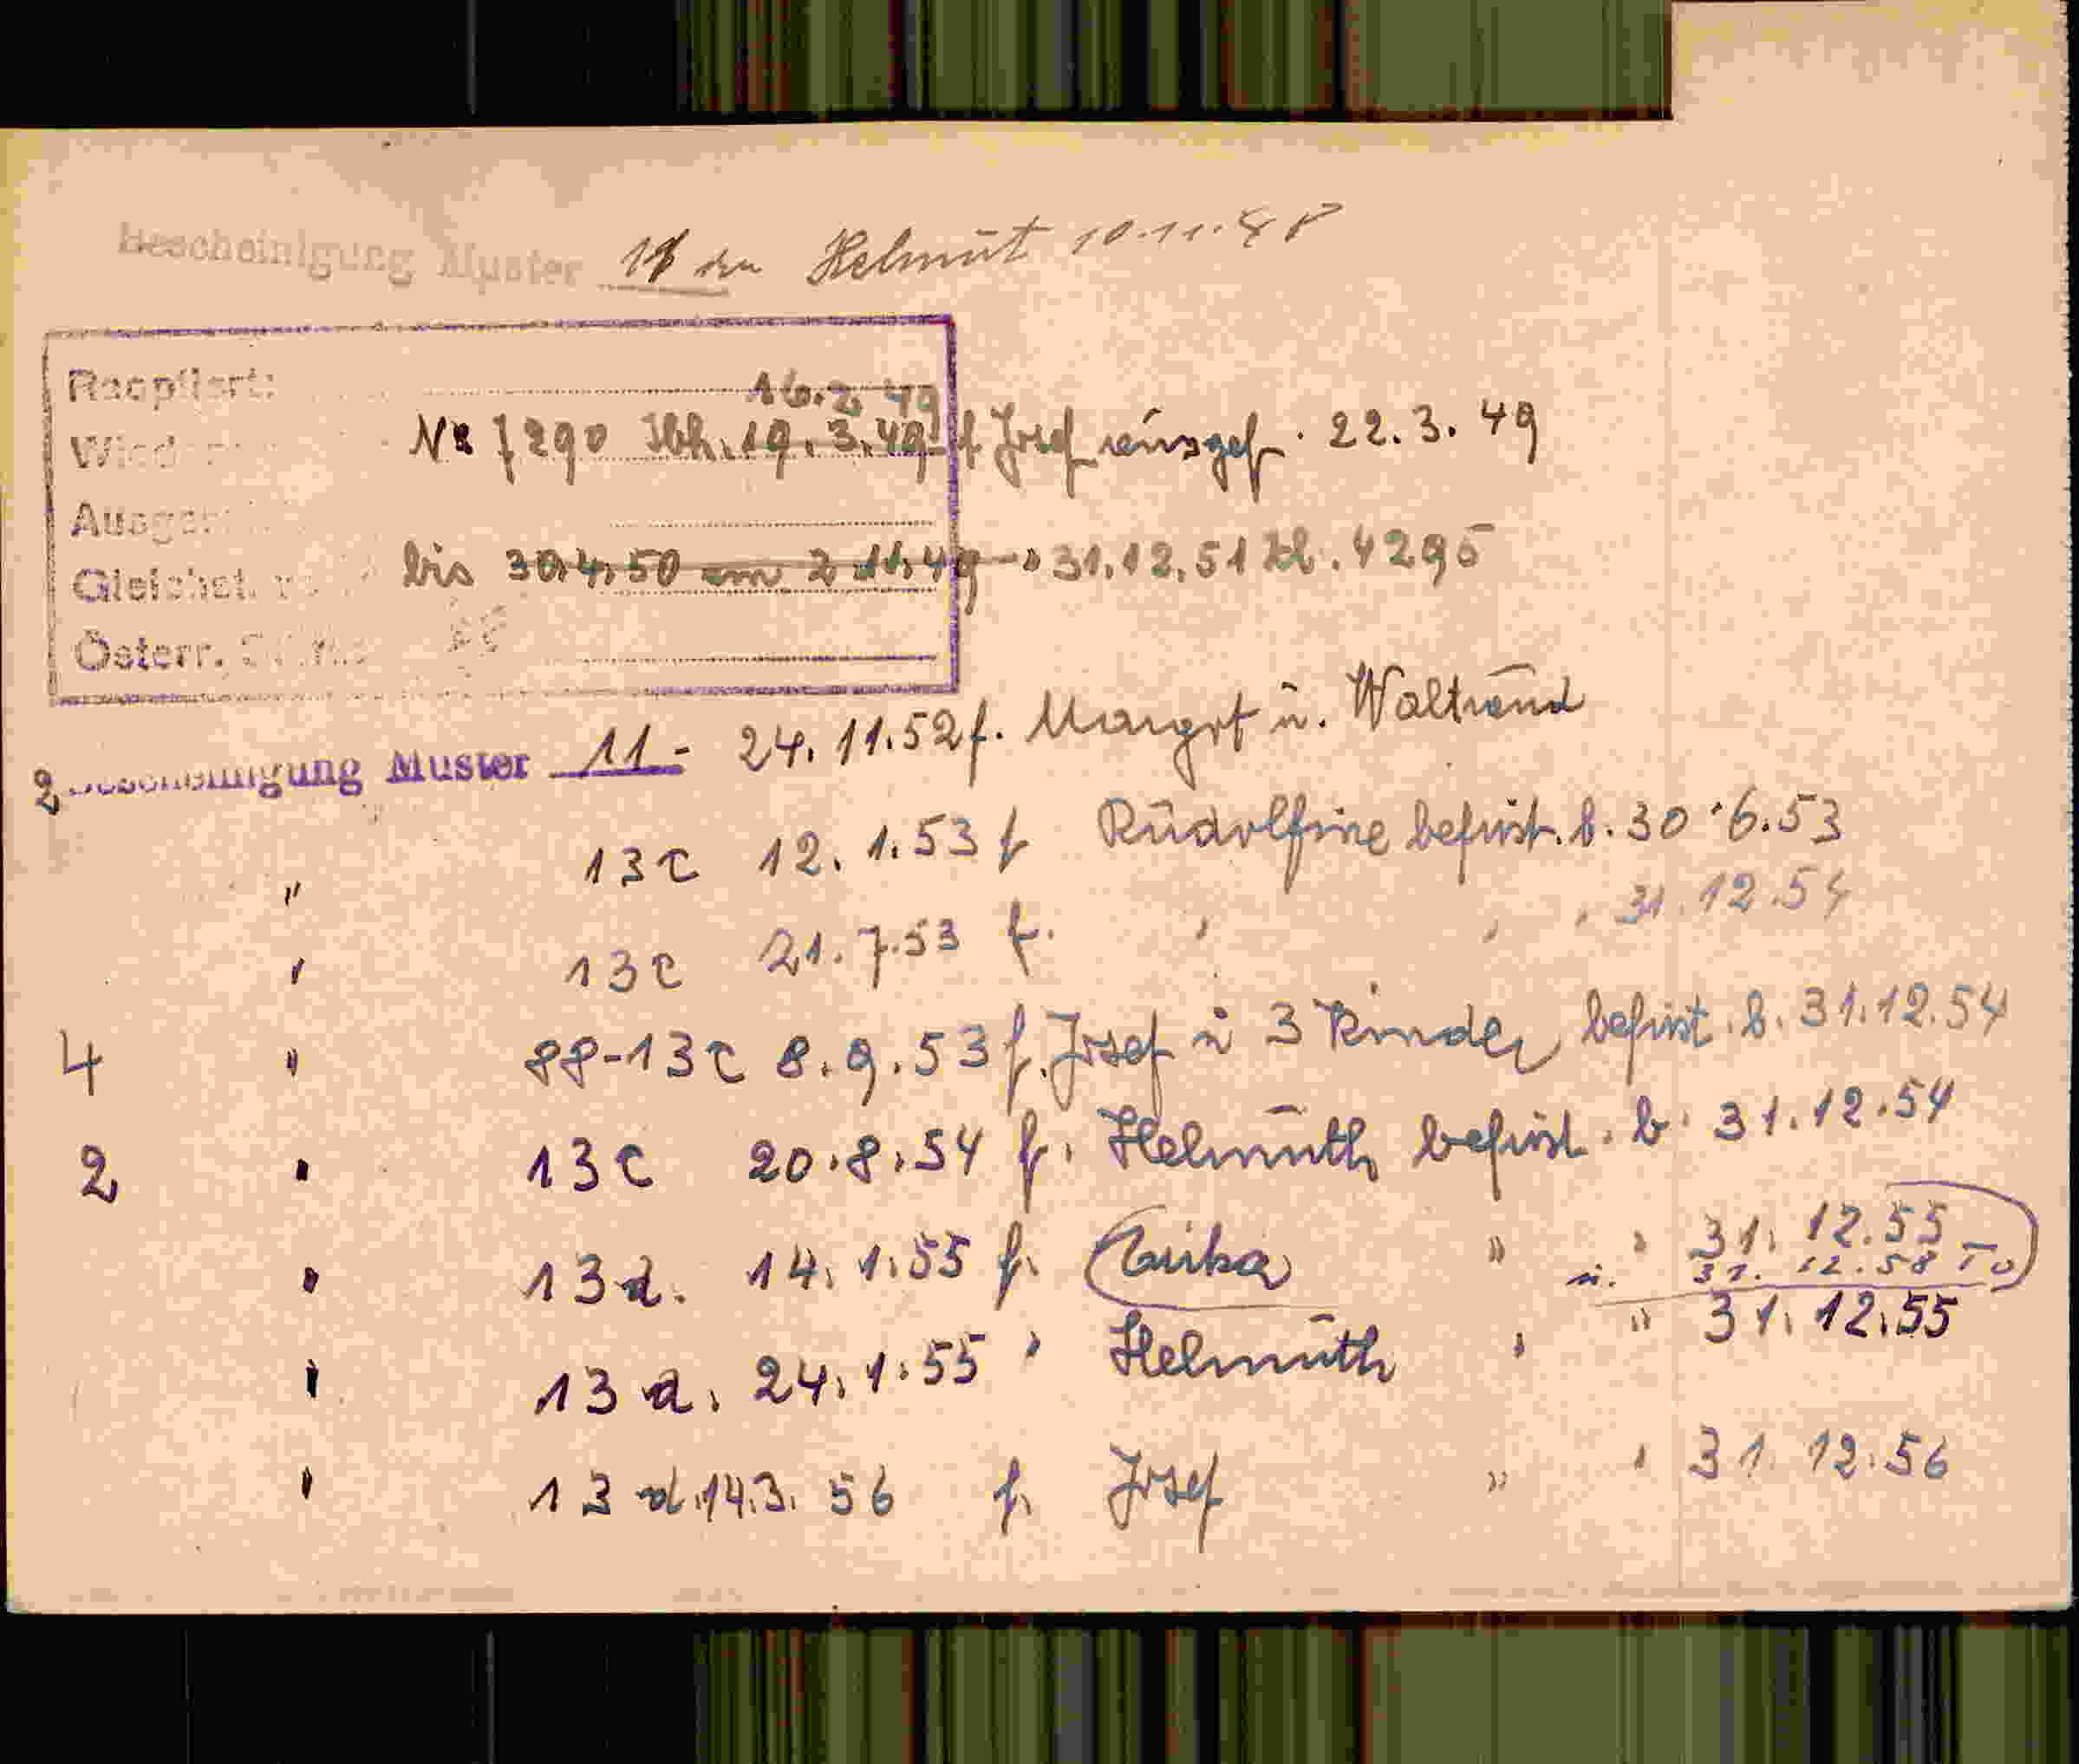 Bescheinigung Muster 11 Helmut 10.11.48
16.2.49
Rsopfiert:
No 7290 19.3.49 f Josef ausgef. 22.3.49
bis 30.4.50 am 2.11.49 - 31.12.51 Zl. 4295
Gleichst.
Österr.
2 Bescheinigung Muster 11 - 24.11.52 f. Margrt u. Waltraud
" 13c 12.1.53 f Rudolfine befrist. b. 30.6.53
" 13c 21.7.53 f. " " " 31.12.54
4 " 88-13c 8.9.53 f. Josef u 3 Kinder befrist. b. 31.12.54
2 " 13c 20.8.54 f. Helmuth befrist. b. 31.12.54
" 13d. 14.1.55 f. " " 31.12.55
31.12.58
" 13d. 24.1.55 " Helmuth " " 31.12.55
" 13d. 14.3.56 f. Josef " " 31.12.56